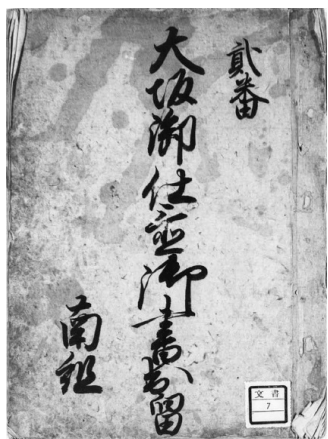 貳番
大坂御仕置御書出留
南組
文書
7